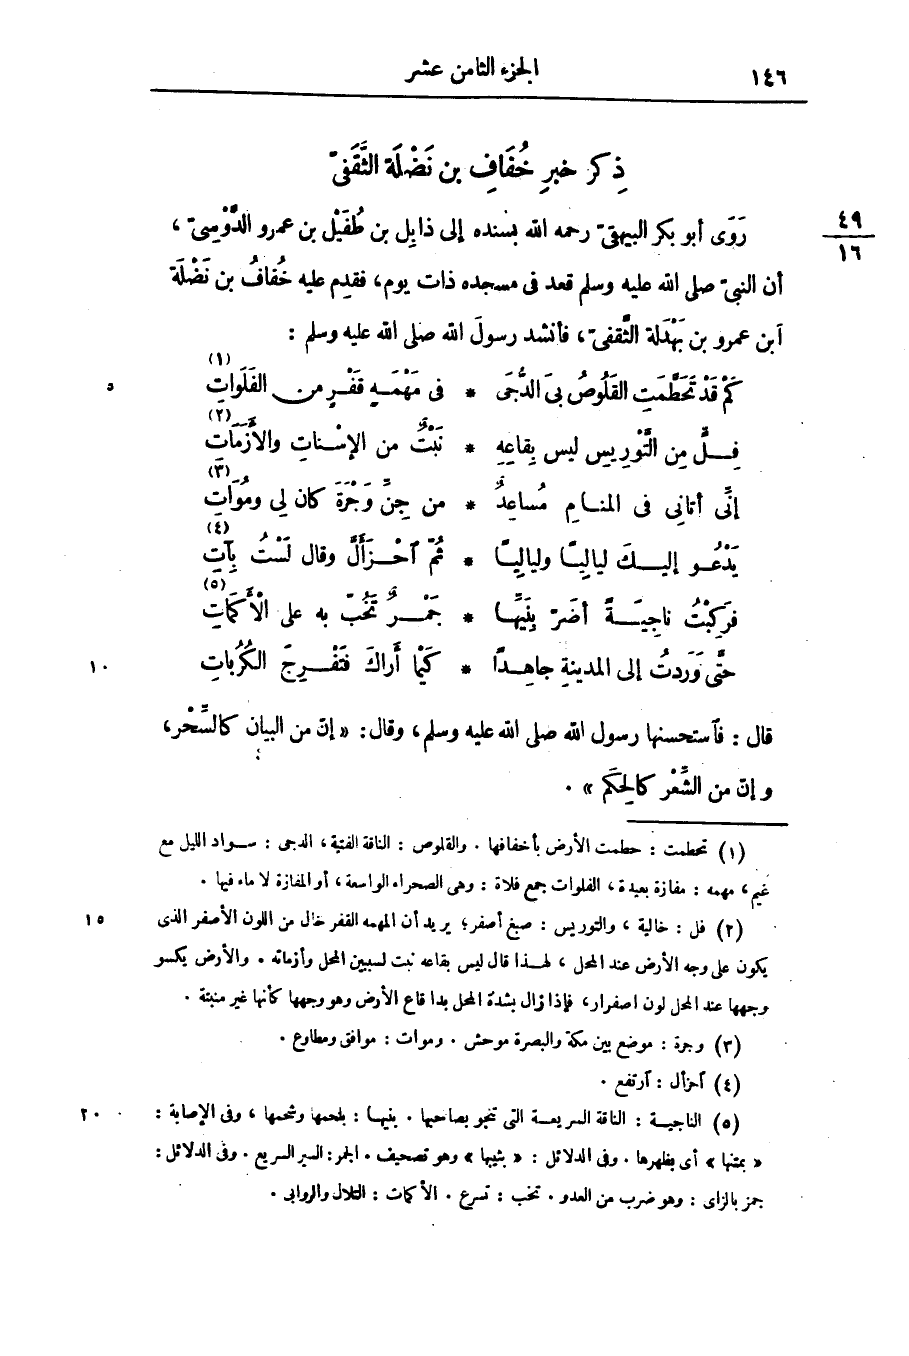 ١٤٦
الجزء الثامن عشر
ذِكر خبرِ خُفَافِ بن نَضْلَة الثَّقَفىّ
رَوَى أبو بكر البيهقىّ رحمه الله بسنده إلى ذابِل بن طُفَيْل بن عمرو الدَّوْسِىّ ،
٤٩
١٦
أن النبىّ صلى الله عليه وسلم قعد فى مسجده ذات يوم، فقدِم عليه خُفافُ بن نَضْلَة
آبن عمرو بن بَهْدَلة الثَّقفىّ، فأنشد رسولَ الله صلى الله عليه وسلم :
كَمْ قَدْ تَحَطَّمَتِ القَلُوصُ بِىَ الدُّجَى * فى مَهْمَهٍ قَفْرٍ من الفَلَواتِ (١)
٥
فِلٍّ مِن التَّوْرِيسِ ليس بِقاعِهِ * نَبْتٌ من الإسْناتِ والأزَمَاتِ (٢)
إنِّى أتانى فى المنامِ مُساعِدٌ * من جِنِّ وَجْرَةَ كان لِى ومُوَاتِ (٣)
يَدْعُو إليكَ ليالِيًا وليالِيًا * ثُمّ آحْزَأَلَّ وقال لَسْتُ بِآتِ (٤)
فرَكِبْتُ ناجِيَةً أضَرّ بِنَيِّها * جَمْرٌ تَخُبّ به على الْأَكَمَاتِ (٥)
حتَّى وَرَدتُ إلى المدينةِ جاهِدًا * كَيْما أَراكَ فتَفْرِجَ الكُرُباتِ
١٠
قال : فآستحسنها رسول الله صلى الله عليه وسلم، وقال: « إنّ من البيان كالسِّحْر،
وإنّ من الشِّعْر كالحِكَم » .
(١) تحطمت : حطمت الأرض بأخفافها . والقلوص : الناقة الفتية، الدجى : سواد الليل مع
غيم، مهمه : مفازة بعيدة، الفلوات جمع فلاة : وهى الصحراء الواسعة، أو المفازة لا ماء فيها .
(٢) فل : خالية ، والتوريس : صبغ أصفر؛ يريد أن المهمه القفر خال من اللون الأصفر الذى
١٥
يكون على وجه الأرض عند المحل ، لهذا قال ليس بقاعه نبت لسببين المحل وأزماته . والأرض يكسو
وجهها عند المحل لون اصفرار، فإذا زال بشدّة المحل بدا قاع الأرض وهو وجهها كأنها غير منبتة .
(٣) وجرة : موضع بين مكة والبصرة موحش . وموات : موافق ومطاوع .
(٤) آحزأل : آرتفع .
(٥) الناجية : الناقة السريعة التى تنجو بصاحبها . بنيها : بلحمها وشحمها ، وفى الإصابة :
٢٠
« بمتنها » أى بظهرها . وفى الدلائل : « بثيبها » وهو تصحيف . الجمر: السير السريع . وفى الدلائل :
جمز بالزاى : وهو ضرب من العدو . تخب : تسرع . الأكمات : التلال والروابى .